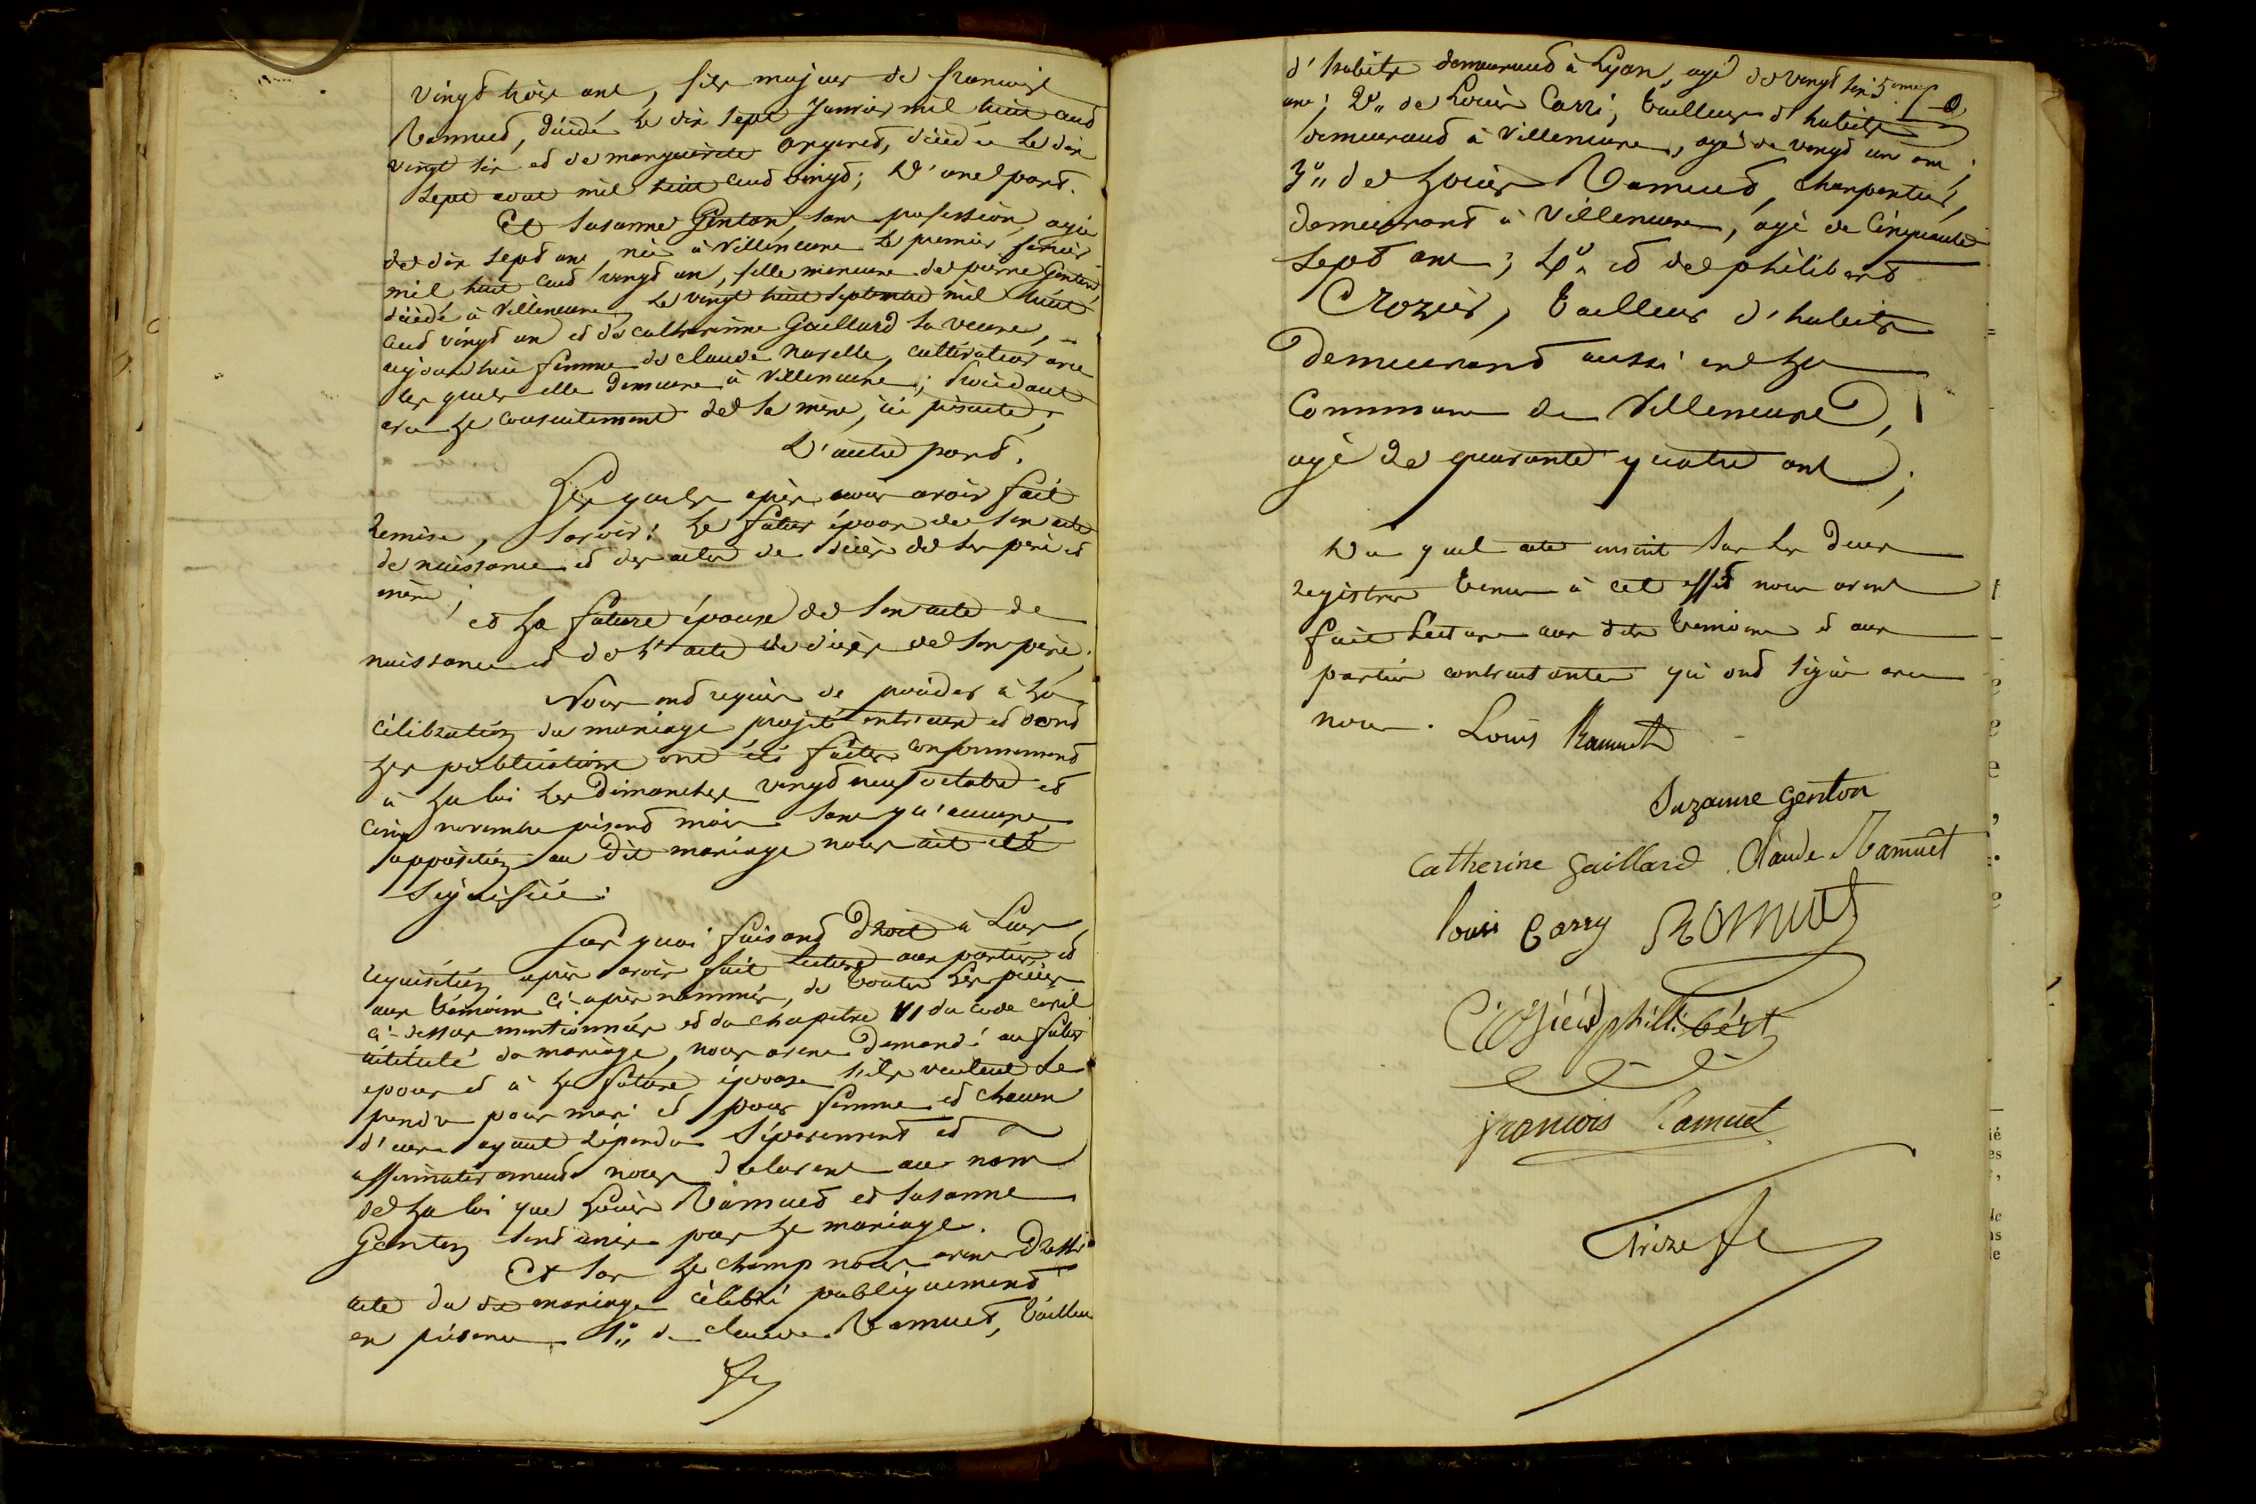 vingt trois ans, fils majeur de francois
Ramuet, décédé le dix sept Janvier mil huit cent
vingt six et de marguerite argaud, décédée le dix
sept aout mil huit cent vingt; D'une part.
Et Susanne Genton, sans profession, agée
de dix sept ans, née à Villeneuve le premier février
mil huit cent vingt un, fille mineure de pierre Genton,
décédé à Villeneuve le vingt huit septembre mil huit
cent vingt un et de catherinne Gaillard sa veuve,
aujourd'hui femme de claude narelle, cultivateur avec
les quels elle demeure à Villeneuve; procédant
avec le consentement de sa mère, ici présente,
D'autre part.
Les quels après nous avoir fait
Remise, savoir: le futur époux de son acte
de naissance et des actes de décès de ses père et
mère;
et la future épouse de son acte de
naissance et de l'acte de décès de son père;
Nous ont requis de procéder à la
célébration du mariage projeté entr'eux et dont
les publications ont été faites conformement
à la loi les Dimanches vingt neuf octobre et
cinq novembre présent mois sans qu'aucune
opposition au dit mariage nous ait été
signifiée.
Sur quoi faisant droit à Leur
réquisition après avoir fait lecture aux parties et
aux témoins ci-après nommés, de toutes les pièces
ci-dessus mentionnées et du chapitre VI du code civil
intitulé du mariage, nous avons demandé au futur
epoux et à la future épouse s'ils veulent se
prendre pour mari et pour femme et chacun
d'eux ayant répondu séparement et
affirmativement nous déclarons au nom
de la loi que Louis Ramuet et Susanne
Genton sont unis par le mariage.
Et sur le champ nous avons dressé
acte du de mariage célébré publiquement
en présence 1º de claude Ramuet, tailleur
d'habits demeurant à Lyon, agé de vingt six
ans; 2º de Louis Carri, tailleur d'habits
demeurant à Villeneuve, agé de vingt un ans;
3º de Louis Ramuet, charpentier,
demeurant à Villeneuve, agé de cinquante
sept ans; 4º et de philibert
Crozier, tailleur d'habits
demeurant aussi en la
commune de Villeneuve,
agé de quarante quatre ans;
Du quel acte inscrit sur les deux
registres tenus à cet effet nous avons
fait lecture aux dits témoins et aux
parties contractantes qui ont signé avec
nous. Louis Ramuet
Suzanne genton
Catherine gaillard Claude Ramuet
louis Carry Ramuet
Crosiér phillibért
francois Ramuet